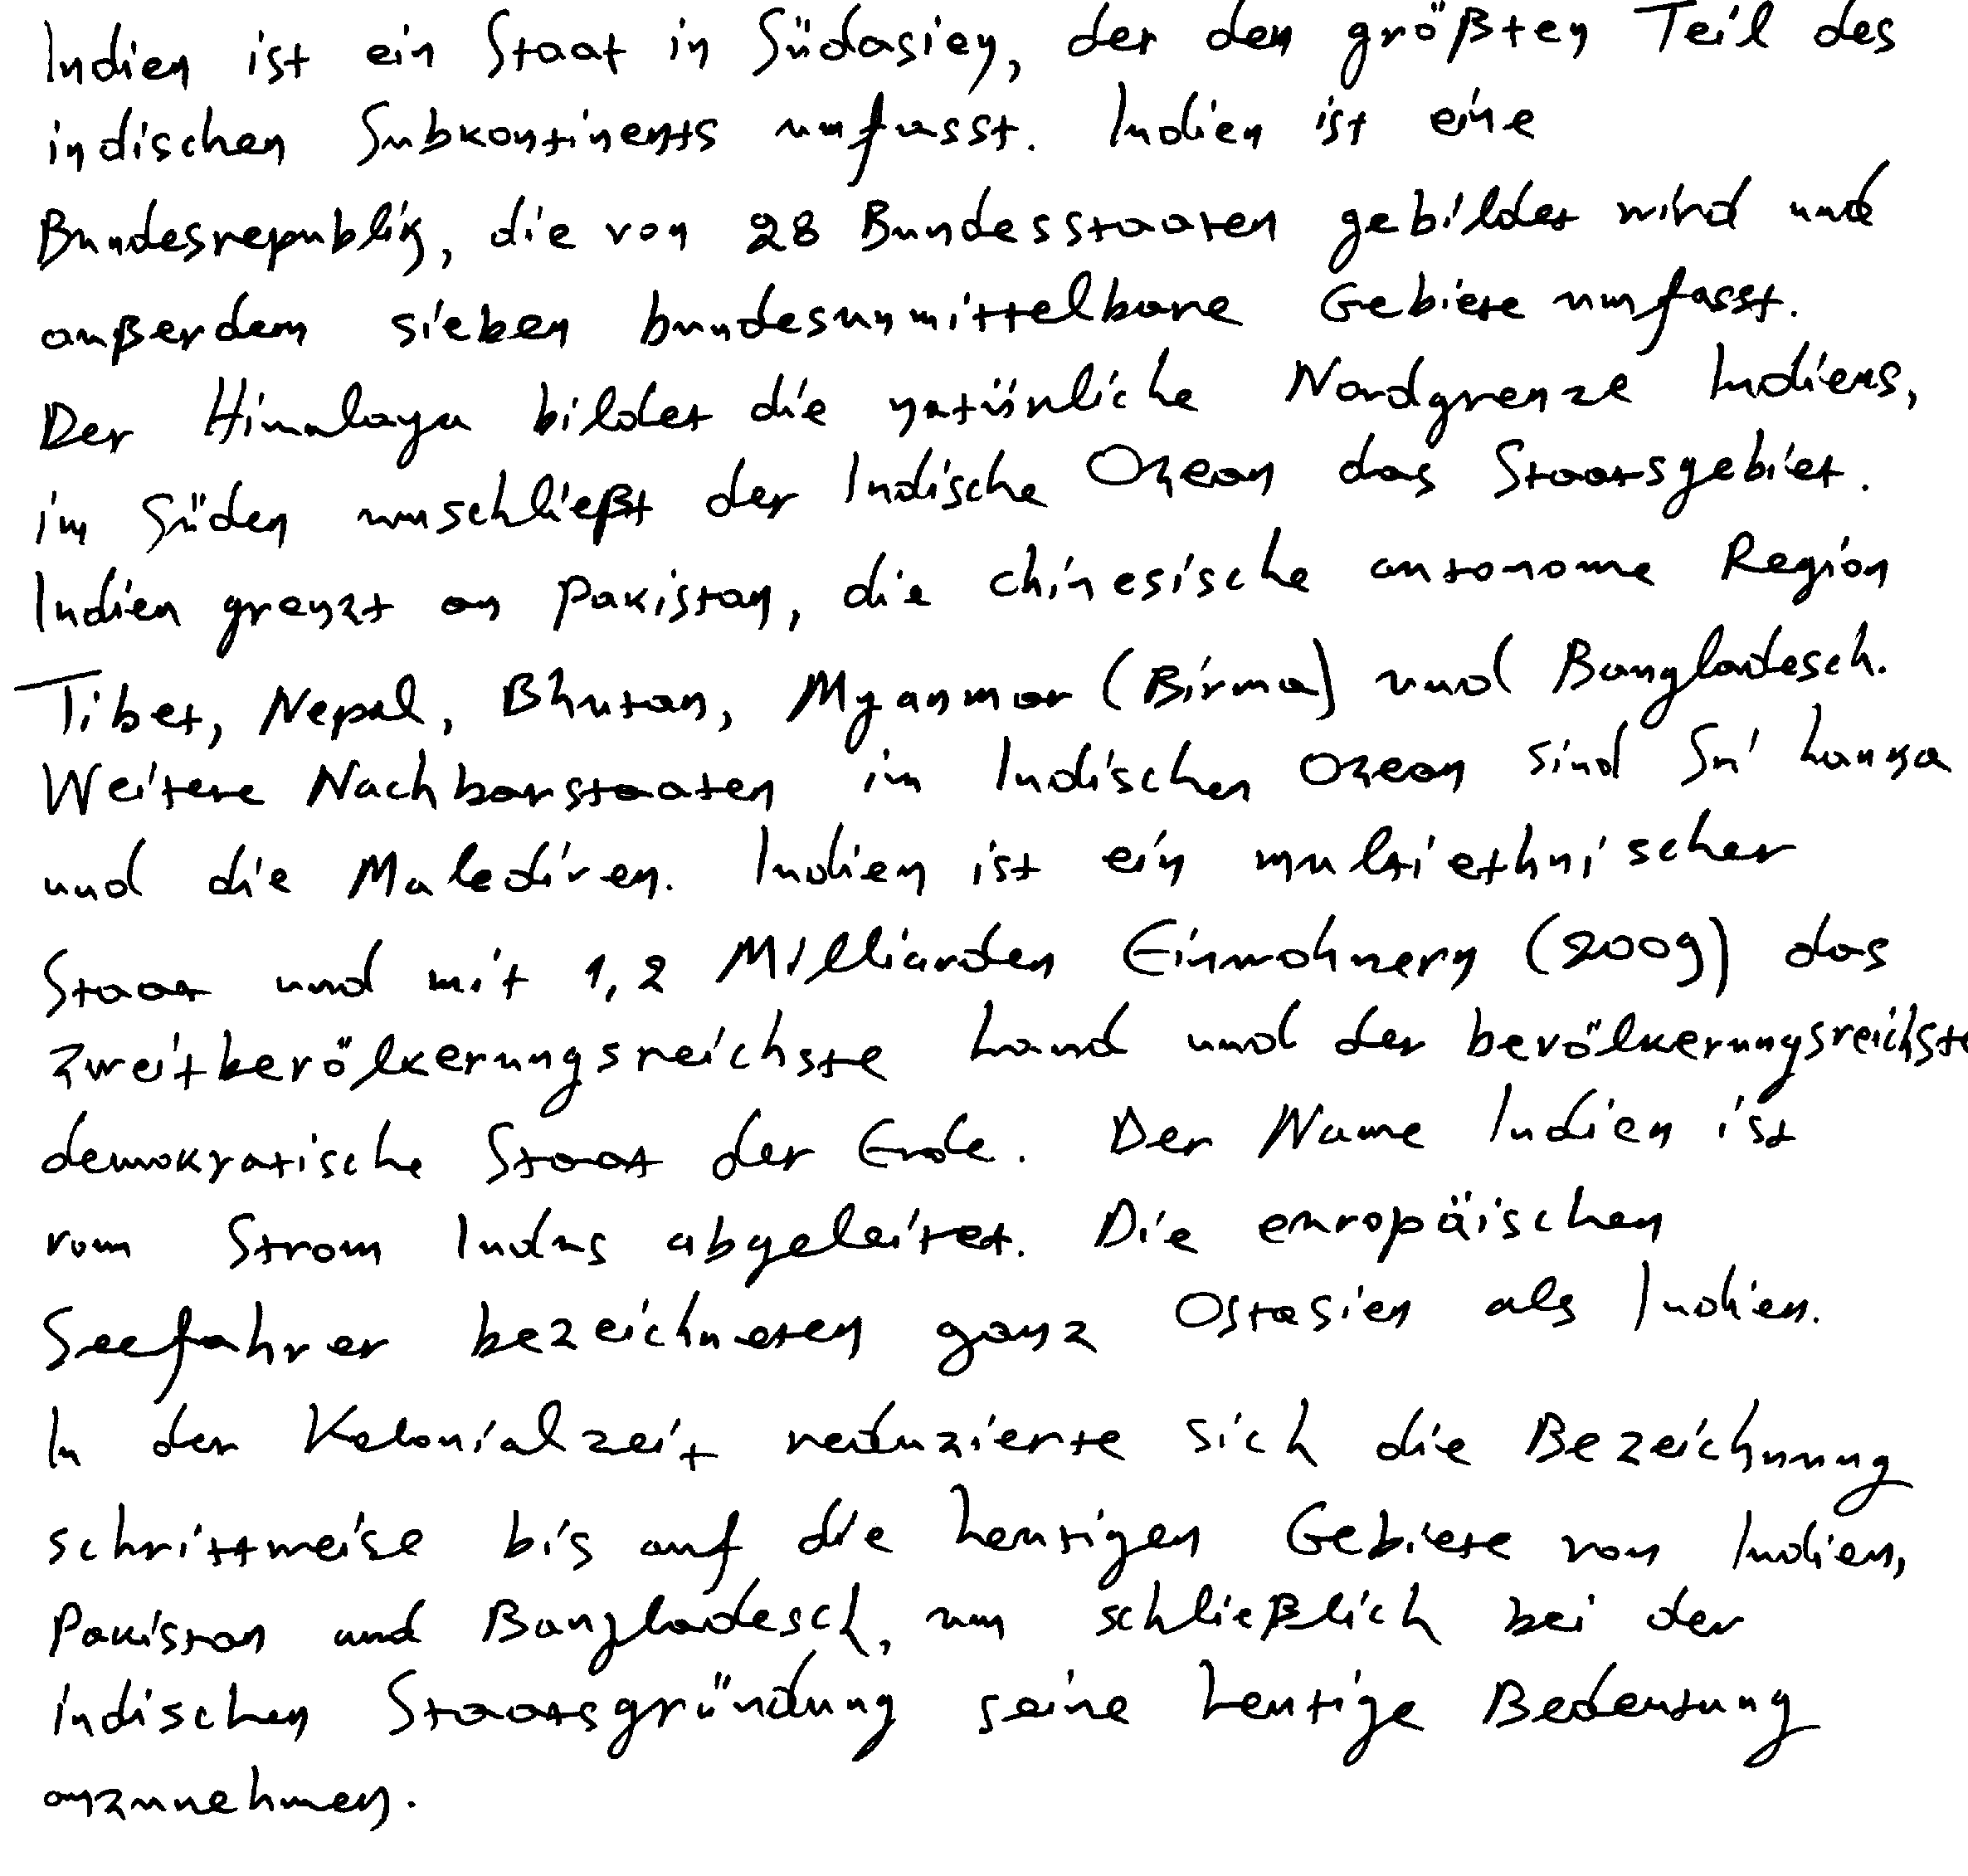 Indien ist ein Staat in Südasien, der den größten Teil des
indischen Subkontinents umfasst. Indien ist eine
Bundesrepublik, die von 28 Bundesstaaten gebildet wird und
außerdem sieben bundesunmittelbare Gebiete umfasst.
Der Himalaya bildet die natürliche Nordgrenze Indiens,
im Süden umschließt der Indische Ozean das Staatsgebiet.
Indien grenzt an Pakistan, die chinesische autonome Region
Tibet, Nepal, Bhutan, Myanmar (Birma) und Bangladesch.
Weitere Nachbarstaaten im Indischen Ozean sind Sri Lanka
und die Malediven. Indien ist ein multiethnischer
Staat und mit 1,2 Milliarden Einwohnern (2009) das
zweitbevölkerungsreichste Land und der bevölkerungsreichste
demokratische Staat der Erde. Der Name Indien ist
vom Strom Indus abgeleitet. Die europäischen
Seefahrer bezeichneten ganz Ostasien als Indien.
In der Kolonialzeit reduzierte sich die Bezeichnung
schrittweise bis auf die heutigen Gebiete von Indien,
Pakistan und Bangladesch, um schließlich bei der
indischen Staatsgründung seine heutige Bedeutung
anzunehmen.